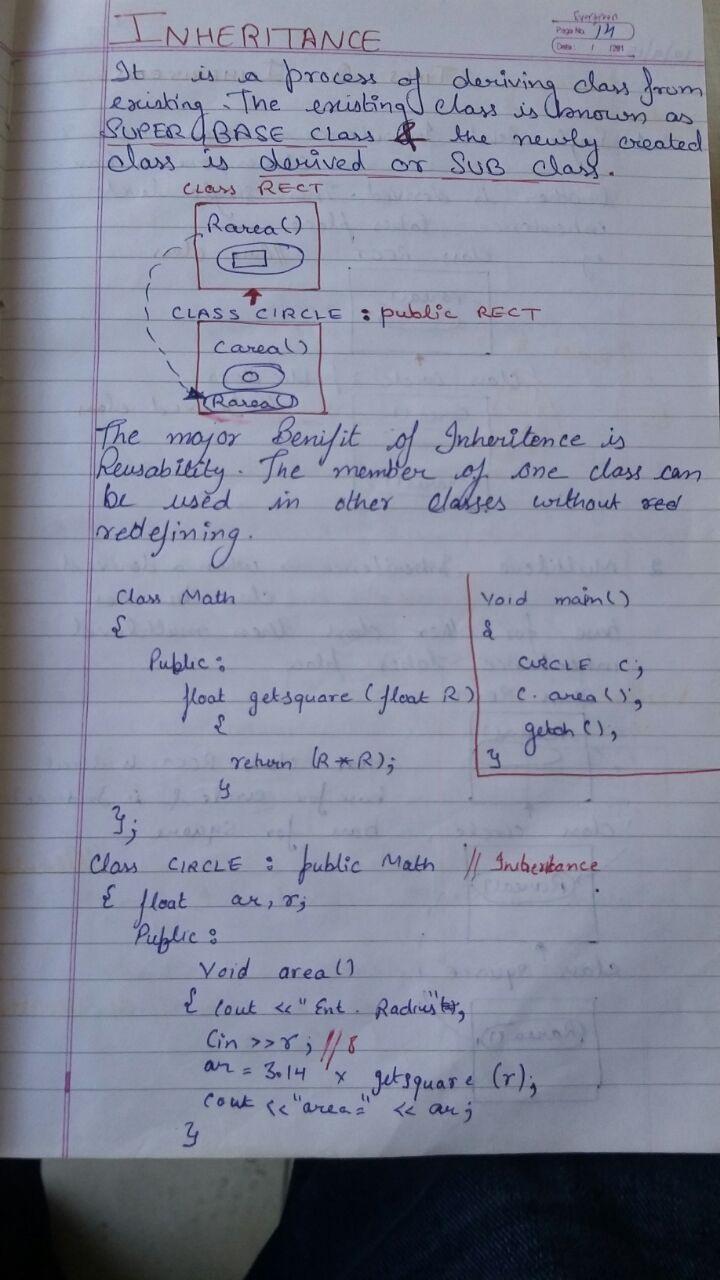 Evergreen
Page No. 14
Date: / /201
INHERITANCE
It is a process of deriving class from
existing. The existing class is known as
SUPER / BASE class & the newly created
class is derived or SUB class.
class RECT
Rarea()
CLASS CIRCLE : public RECT
Carea()
Rarea()
The major Benifit of Inheritence is
Reusability. The member of one class can
be used in other classes without red
redefining.
Class Math
{
Public :
float getsquare (float R)
{
return (R*R);
}
};
Void main()
{
CIRCLE C;
C. area();
getch();
}
Class CIRCLE : public Math // Inheritance
{ float ar, r;
Public :
Void area()
{ Cout <<"Ent. Radius";
Cin >>r; //8
ar = 3.14 x getsquare (r);
Cout <<"area=" << ar;
}